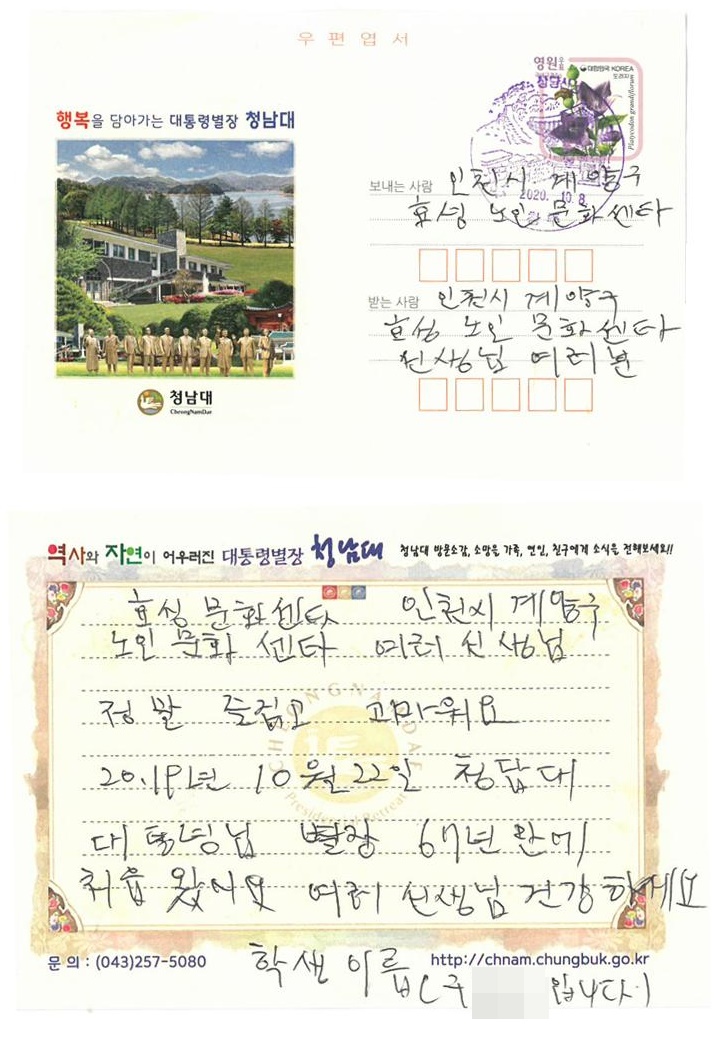 우편엽서
영원우표
대한민국 KOREA
도라지
Platycodon grandiflorum
행복을 담아가는 대통령별장 청남대
보내는 사람 인천시 계양구
2020. 10. 8.
효성 노인 문화 센타
받는 사람 인천시 계양구
효성 노인 문화 센타
선생님 여러분
청남대
CheongNamDae
역사와 자연이 어우러진 대통령별장 청남대 청남대 방문소감, 소망을 가족, 연인, 친구에게 소식을 전해보세요!!
효성 문화 센타 인천시 계양구
노인 문화 센타 여러 선생님
정말 즐겁고 고마워요
CHEONGNAMDAE
Presidential Retreat
20.19년 10월 22일 청담대
대통녕님 별장 67년 만에
처음 왔서요 여러 선생님 건강 하세요
문 의 : (043)257-5080 http://chnam.chungbuk.go.kr
학생 이름 (구 입니다.)